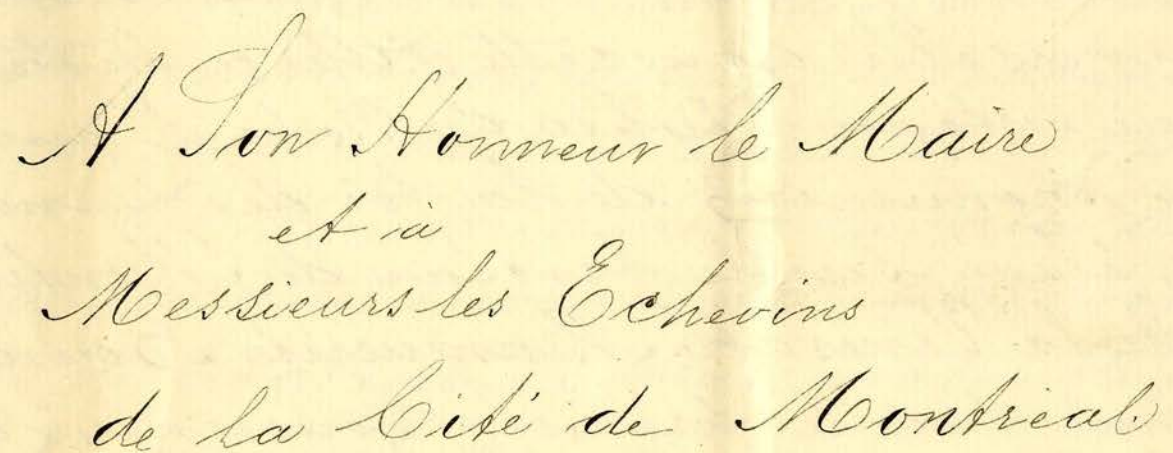 A Son Honneur le Maire
et à
Messieurs les Echevins
de la Cité de Montréal